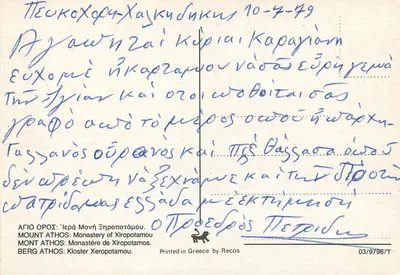 Πευκοχόρι-Χαλκηδικης 10-7-79
Αγαπηται Κυριαι Καραγιάνη
ευχομε η καρταμου να σας εύρη γεμά
την Αγίαν και οτι ποθοίται σας
γραφό απο το μέρος οπου ηπάρχη
Γαλλανός ούρανός και Πλέ θάλλασα οπου
δεν πρέπη να ξεχναμε και την
πατριδαμας ελλάδα με εκτημηση
ο Προεδρός Πετρίδης
ΑΓΙΟ ΟΡΟΣ: Ἱερὰ Μονὴ Ξηροποτάμου.
MOUNT ATHOS: Monastery of Xiropotamou
MONT ATHOS: Monastère de Xiropotamos.
BERG ATHOS: Kloster Xeropotamou.
Printed in Greece by Recos
03/9796/T